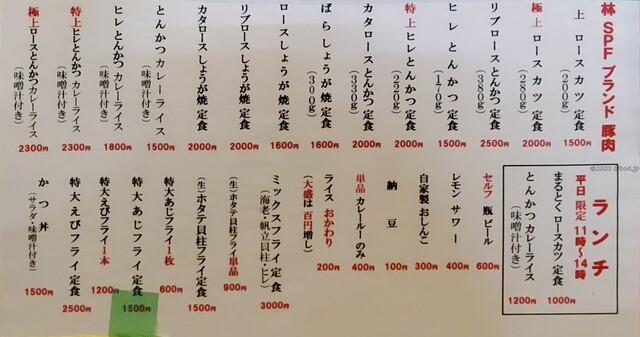 林 SPF ブランド 豚肉
上 ロースカツ 定食 (200g) 1500円
極上 ロースカツ 定食 (280g) 2000円
リブロースとんかつ 定食 (380g) 2500円
ヒレ とんかつ 定食 (170g) 1500円
特上 ヒレとんかつ 定食 (220g) 2000円
カタロースとんかつ 定食 (330g) 2000円
ばらしょうが焼 定食 (300g) 1600円
ロースしょうが焼 定食 1600円
リブロースしょうが焼 定食 2000円
カタロースしょうが焼 定食 2000円
とんかつカレーライス (味噌汁付き) 1500円
ヒレとんかつカレーライス (味噌汁付き) 1800円
特上ヒレとんかつ カレーライス (味噌汁付き) 2300円
極上ロースとんかつ カレーライス (味噌汁付き) 2300円
ランチ
平日 限定 11時〜14時
まるとくロースカツ 定食 1000円
とんかつカレーライス (味噌汁付き) 1200円
セルフ 瓶ビール 600円
レモン サワー 400円
自家製 おしんこ 300円
納豆 100円
単品 カレールーのみ 400円
ライス おかわり 200円
(大盛は百円増し)
ミックスフライ定食 (海老・帆立貝柱・ヒレ) 3000円
(生)ホタテ貝柱フライ単品 900円
(生)ホタテ貝柱フライ定食 1500円
特大あじフライ1枚 600円
特大あじフライ定食 1500円
特大えびフライ1本 1200円
特大えびフライ定食 2500円
かつ丼 (サラダ・味噌汁付き) 1500円